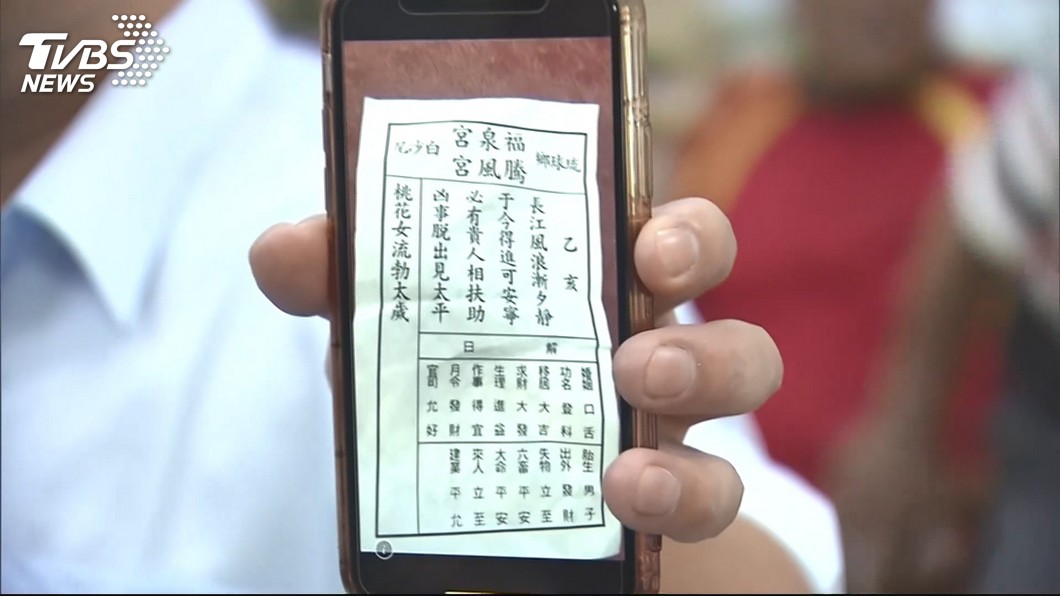 TVBS
NEWS
琉球鄉
福泉宮
騰風宮
白沙尾
乙亥
長江風浪漸夕靜
于今得進可安寧
必有貴人相扶助
凶事脫出見太平
桃花女流勃太歲
解日
婚姻口舌
功名登科
移居大吉
求財大發
生理進益
作事得宜
月令發財
官司允好
胎生男子
出外發財
失物立至
六畜平安
大命平安
來人立至
建業平允